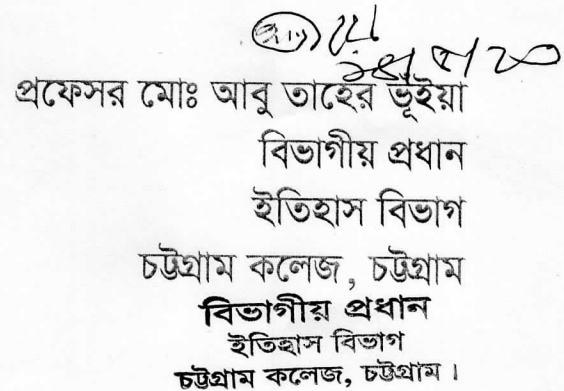 প্রফেসর মোঃ আবু তাহের ভূঁইয়া
বিভাগীয় প্রধান
ইতিহাস বিভাগ
চট্টগ্রাম কলেজ, চট্টগ্রাম
বিভাগীয় প্রধান
ইতিহাস বিভাগ
চট্টগ্রাম কলেজ, চট্টগ্রাম।